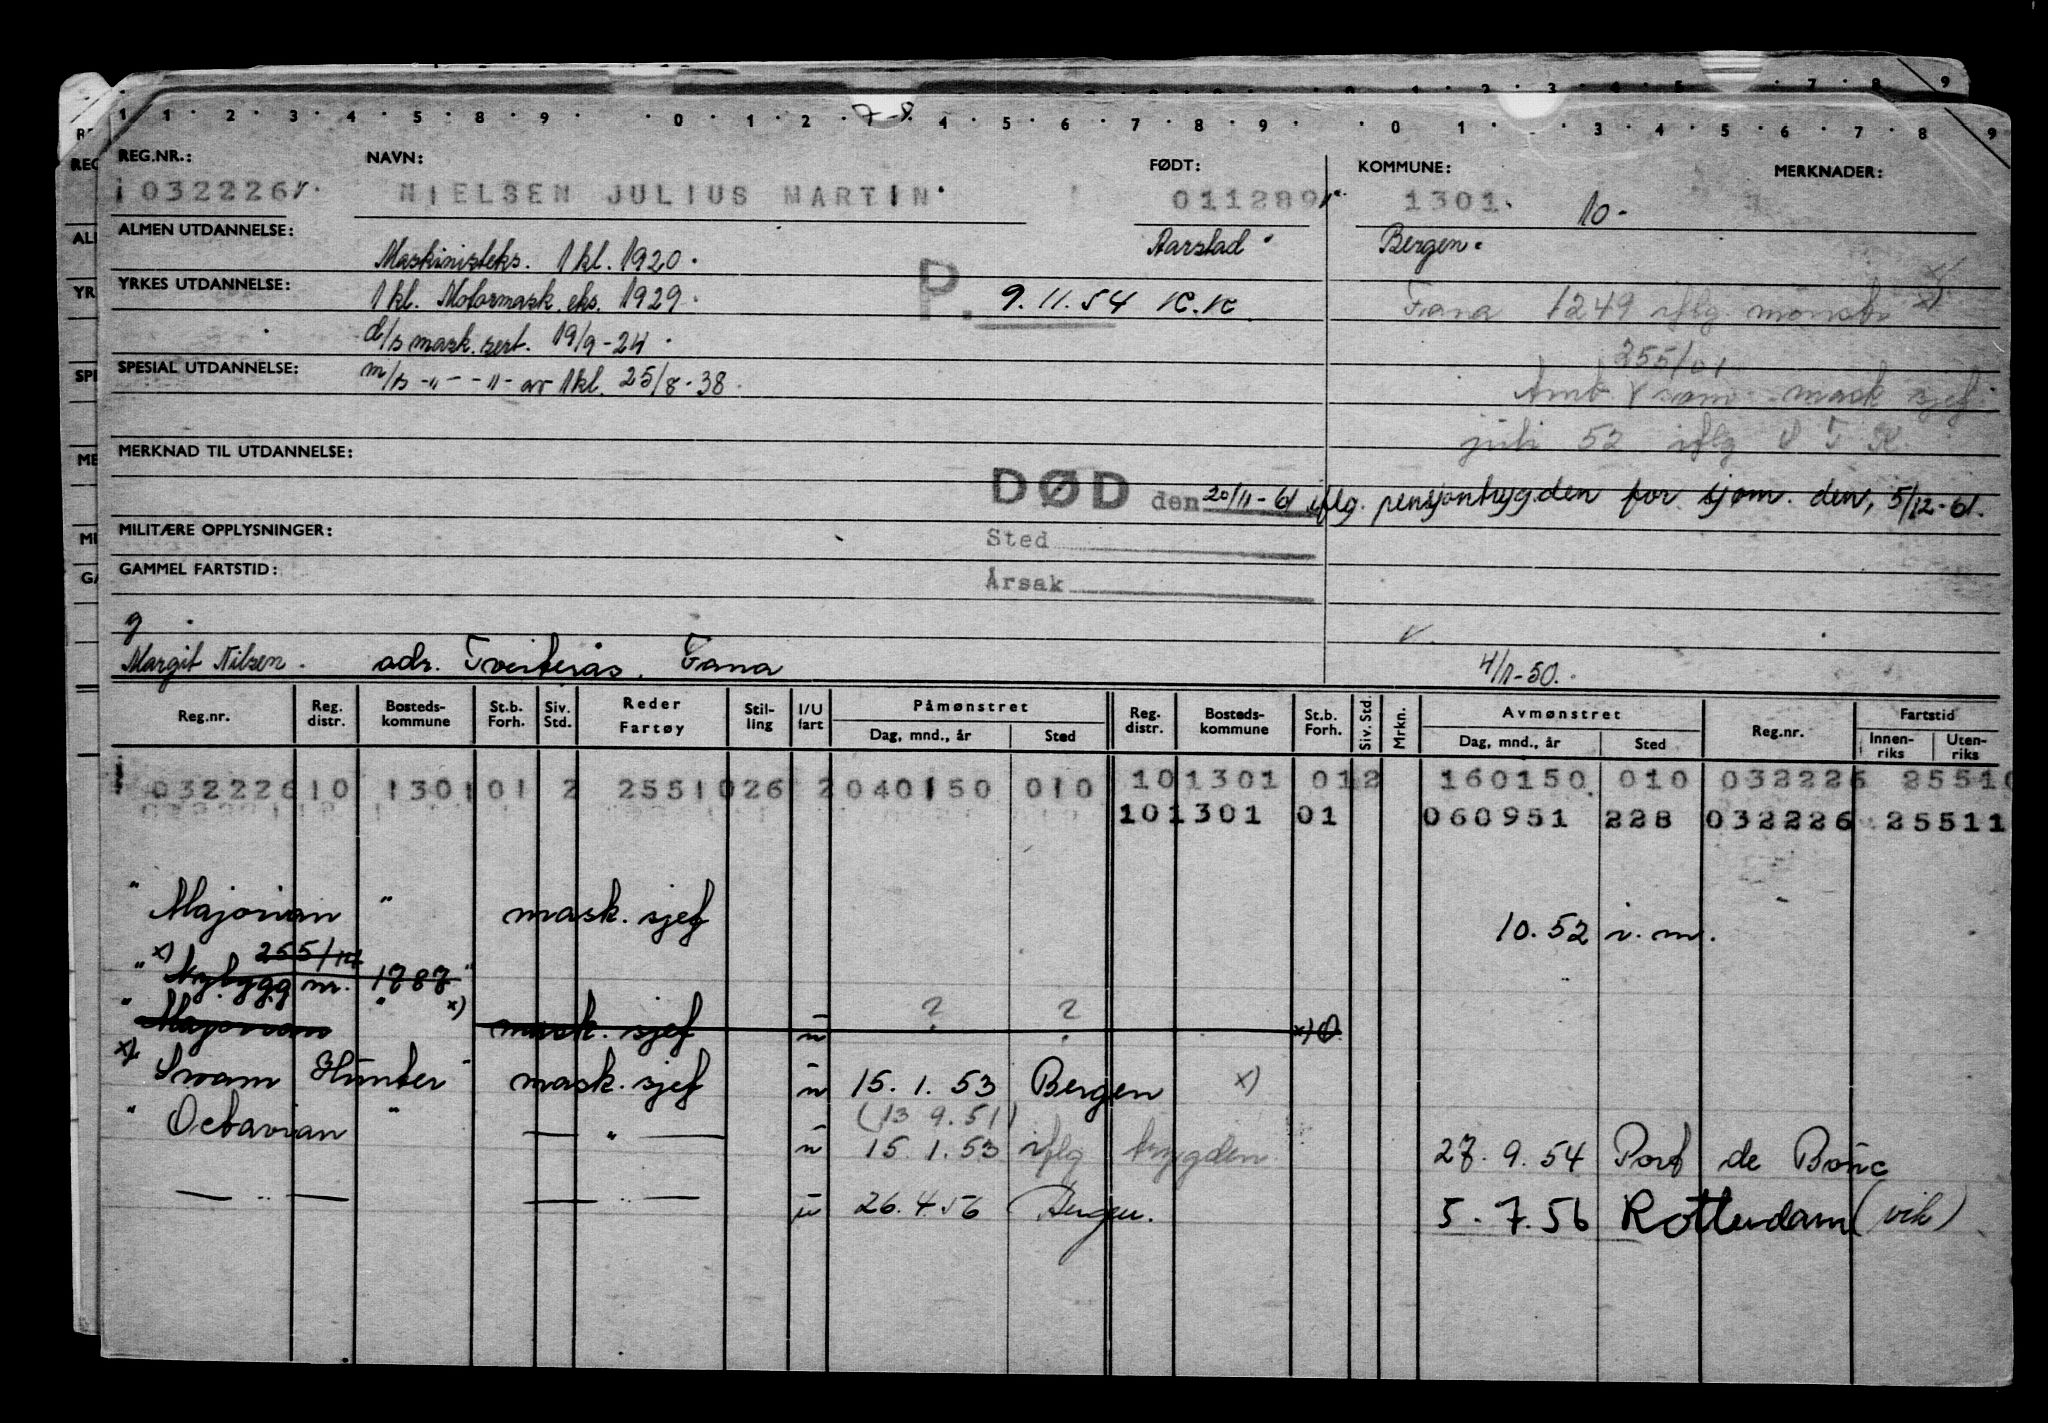 1 · 1 · 2 · 3 · 4 · 5 · 8 · 9 · 0 · 1 · 2 · 7 - 8 · 4 · 5 · 6 · 7 · 8 · 9 · 0 · 1 · 3 · 4 · 5 · 6 · 7 · 8 9
REG.NR.: NAVN: FØDT: KOMMUNE: MERKNADER:
032226 NIELSEN JULIUS MARTIN 011289 1301 10-
ALMEN UTDANNELSE: Maskinisteks. 1 kl. 1920. Aarstad Bergen.
YRKES UTDANNELSE: 1 kl. Motormask. eks. 1929. P. 9.11.54 K.K. Fana 1249 iflg. mønstr. x)
d/s mask. sert. 19/9-24. 255/01
SPESIAL UTDANNELSE: m/s -"- -"- av 1 kl. 25/8-38. mask sjef
juli 52 iflg
MERKNAD TIL UTDANNELSE:
DØD den 20/11-61 iflg. pensjontrygden for sjøm. den, 5/12-61.
MILITÆRE OPPLYSNINGER: Sted
GAMMEL FARTSTID: Årsak
g
Margit Nilsen. adr. Tveiterås. Fana 4/1-50.
Reg.nr. Reg. distr. Bosteds-kommune St.b. Forh. Siv. Std. Reder Fartøy Stil-ling I/U fart Påmønstret Reg. distr. Bosteds-kommune St.b. Forh. Siv. Std. Mrkn. Avmønstret Reg.nr. Fartstid
Dag, mnd., år Sted Dag, mnd., år Sted Innen-riks Uten-riks
032226 10 1301 01 2 25510 26 2 040150 010 10 1301 01 2 160150 010 032226 25510
10 1301 01 060951 228 032226 25511
" Majorian " mask. sjef 10.52 i.m.
x) 255/
" Nybygg nr. 1787 "
" Majorian " x) mask. sjef u ? ? x)
x) Svam Hunter " mask. sjef u 15.1.53 Bergen x)
(13 9.51)
" Octavian " — " — u 15.1.53 iflg trygden 27.9.54 Port de Bouc
— " — — " — u 26.4.56 Bergen. 5.7.56 Rotterdam (vik)